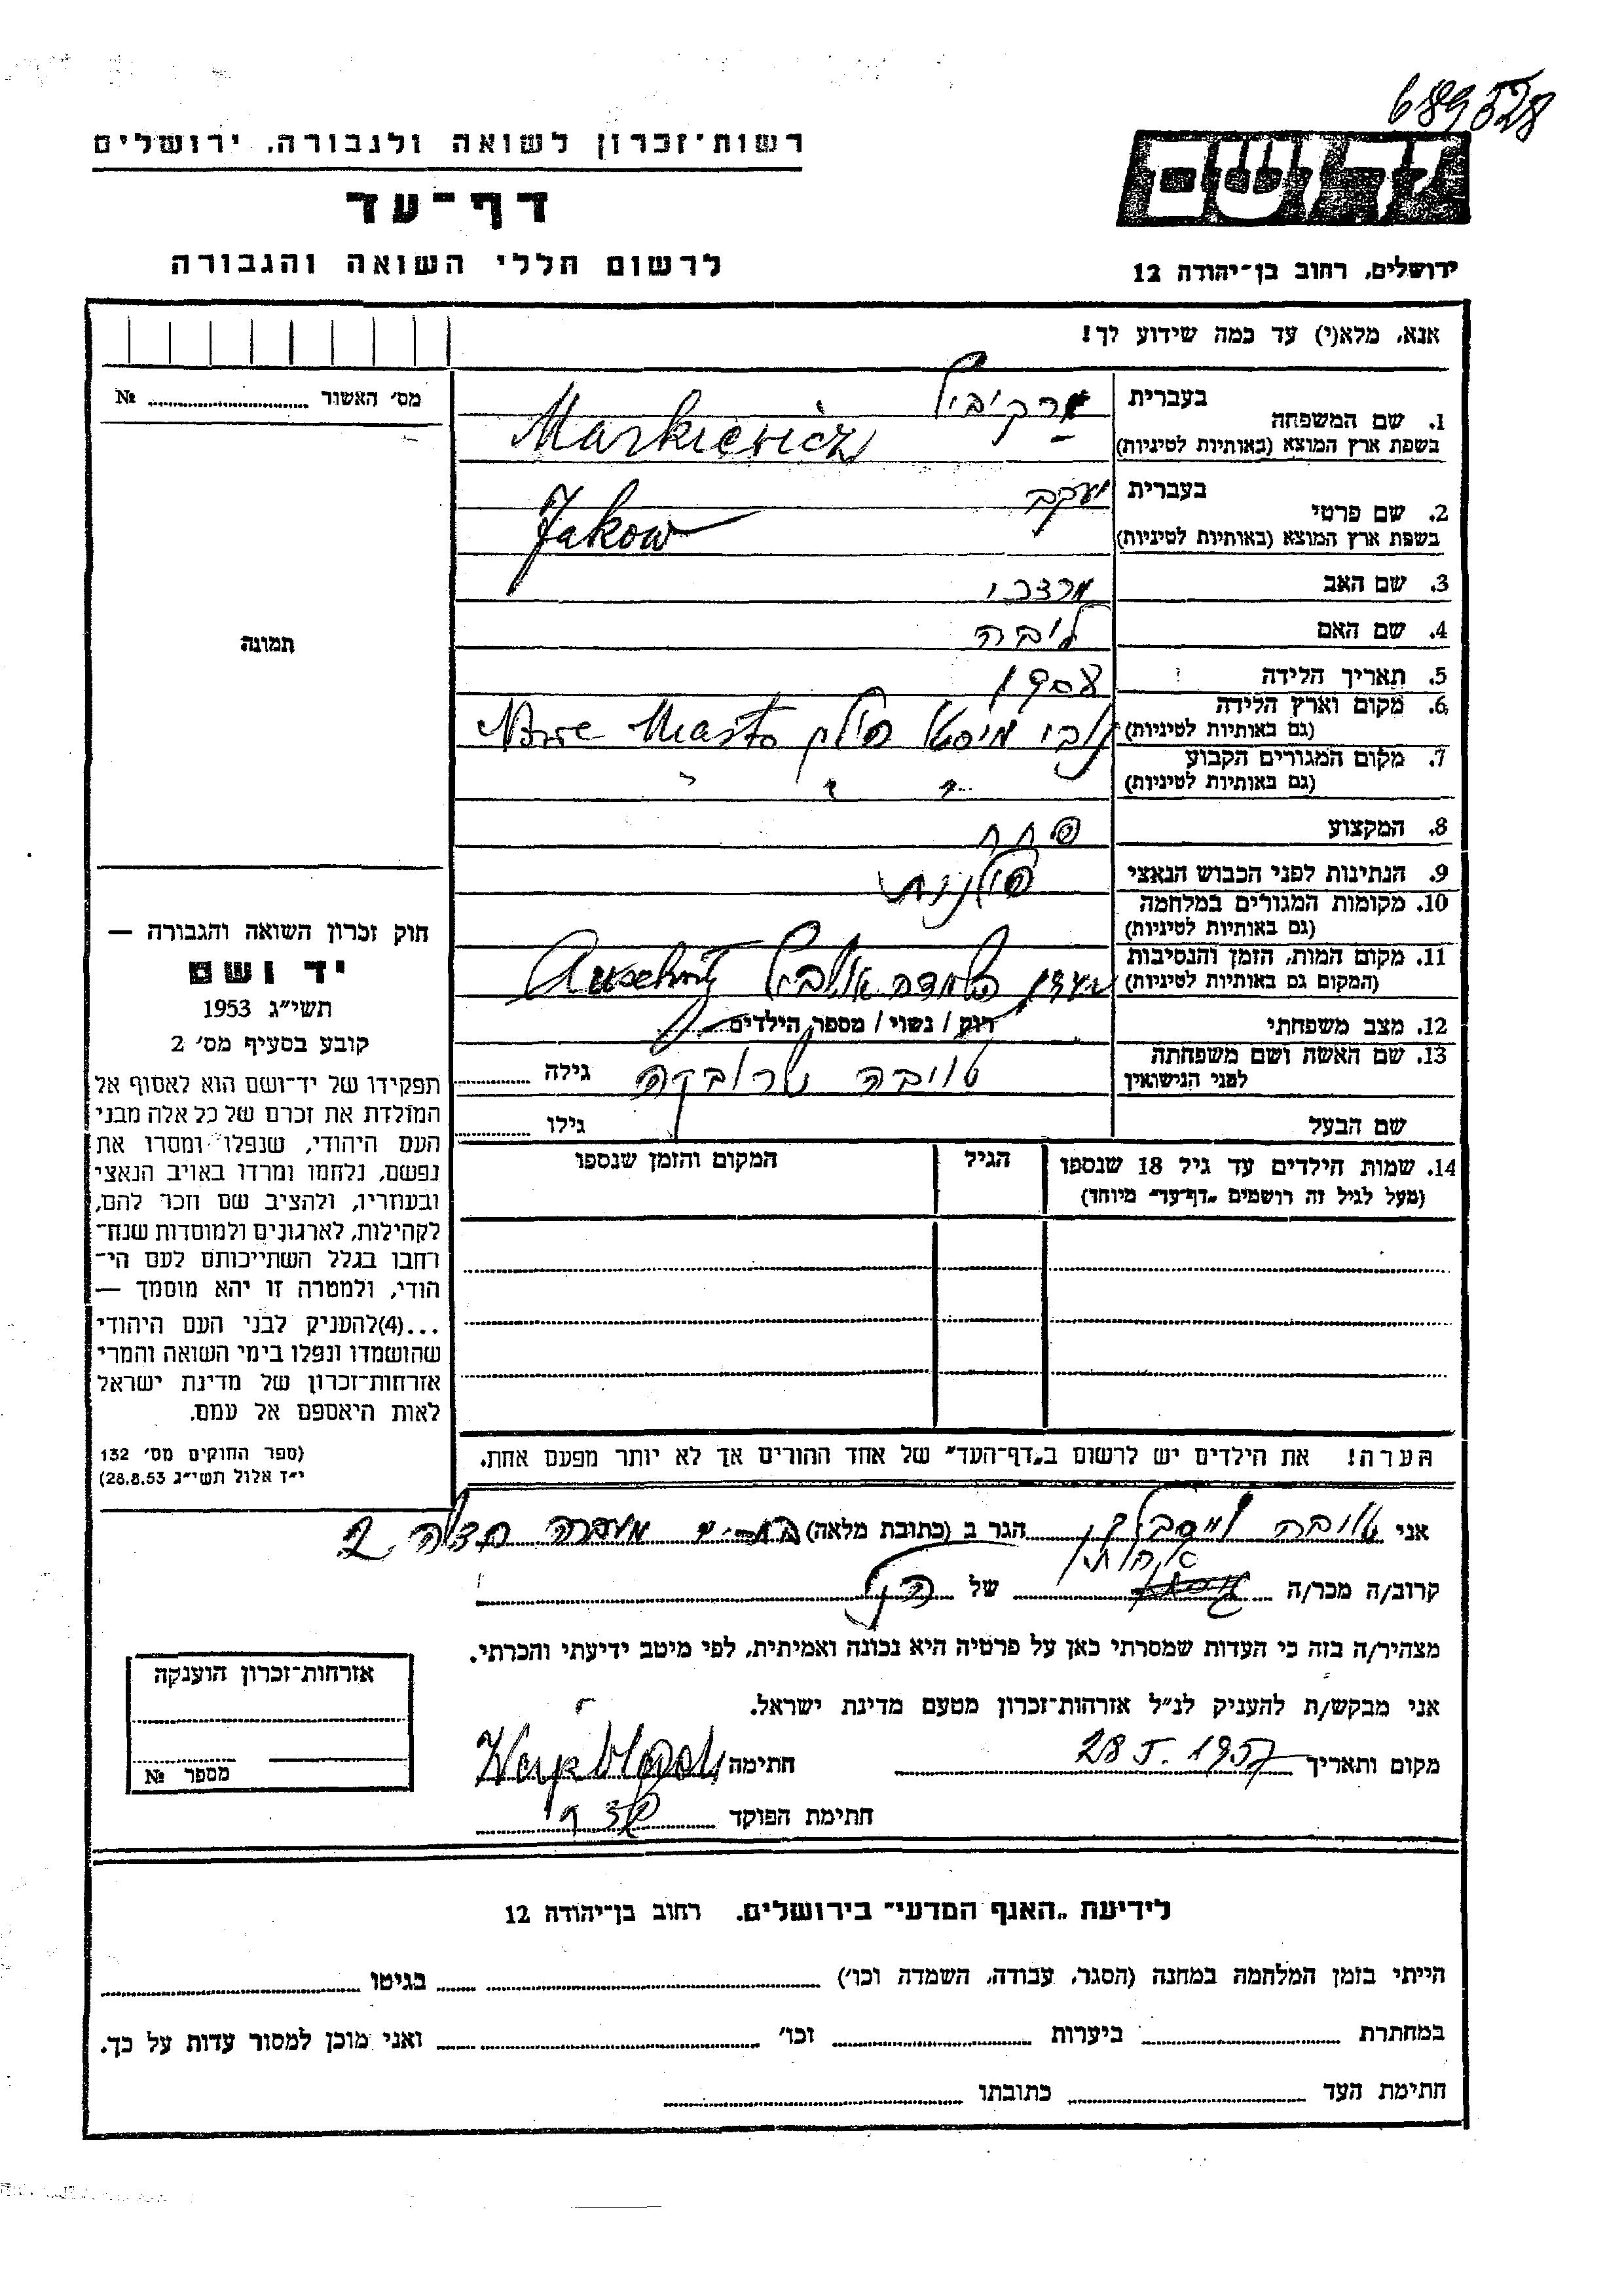 689528
רשות־זכרון לשואה ולגבורה, ירושלים
דף־עד
לרשום חללי השואה והגבורה
יד ושם
ירושלים, רחוב בן־יהודה 12
אנא, מלא(י) עד כמה שידוע לך!
מס׳ האשור № 
תמונה
חוק זכרון השואה והגבורה —
יד ושם
תשי״ג 1953
קובע בסעיף מס׳ 2
תפקידו של יד־ושם הוא לאסוף אל
המולדת את זכרם של כל אלה מבני
העם היהודי, שנפלו ומסרו את
נפשם, נלחמו ומרדו באויב הנאצי
ובעוזריו, ולהציב שם וזכר להם,
לקהילות, לארגונים ולמוסדות שנח־
רבו בגלל השתייכותם לעם הי־
הודי, ולמטרה זו יהא מוסמך —
...(4)להעניק לבני העם היהודי
שהושמדו ונפלו בימי השואה והמרי
אזרחות־זכרון של מדינת ישראל
לאות היאספם אל עמם.
(ספר החוקים מס׳ 132
י״ד אלול תשי״ג 28.8.53)
1. שם המשפחה בעברית
בשפת ארץ המוצא (באותיות לטיניות) Markiewicz
2. שם פרטי בעברית יעקב
בשפת ארץ המוצא (באותיות לטיניות) Jakow
3. שם האב מרדכי
4. שם האם ליבה
5. תאריך הלידה
6. מקום וארץ הלידה
(גם באותיות לטיניות) נובי מיסטו פולין Nowe Miasto
7. מקום המגורים הקבוע
(גם באותיות לטיניות) " " "
8. המקצוע פחח
9. הנתינות לפני הכבוש הנאצי פולנית
10. מקומות המגורים במלחמה
(גם באותיות לטיניות)
11. מקום המות, הזמן והנסיבות
(המקום גם באותיות לטיניות)
12. מצב משפחתי רוק / נשוי / מספר הילדים
13. שם האשה ושם משפחתה
לפני הנישואין טויבה גילה
שם הבעל גילו
14. שמות הילדים עד גיל 18 שנספו הגיל המקום והזמן שנספו
(מעל לגיל זה רושמים „דף־עד״ מיוחד)
הערה! את הילדים יש לרשום ב„דף־העד״ של אחד ההורים אך לא יותר מפעם אחת.
אני טובה הגר ב (כתובת מלאה) מעברה חדרה
אחותי
קרוב/ה מכר/ה של
מצהיר/ה בזה כי העדות שמסרתי כאן על פרטיה היא נכונה ואמיתית, לפי מיטב ידיעתי והכרתי.
אני מבקש/ת להעניק לנ״ל אזרחות־זכרון מטעם מדינת ישראל.
מקום ותאריך 28 5. 1957 חתימה
חתימת הפוקד
אזרחות־זכרון הוענקה
מספר №
לידיעת „האגף המדעי״ בירושלים. רחוב בן־יהודה 12
הייתי בזמן המלחמה במחנה (הסגר, עבודה, השמדה וכו׳) בגיטו
במחתרת ביערות וכו׳ ואני מוכן למסור עדות על כך.
חתימת העד כתובתו